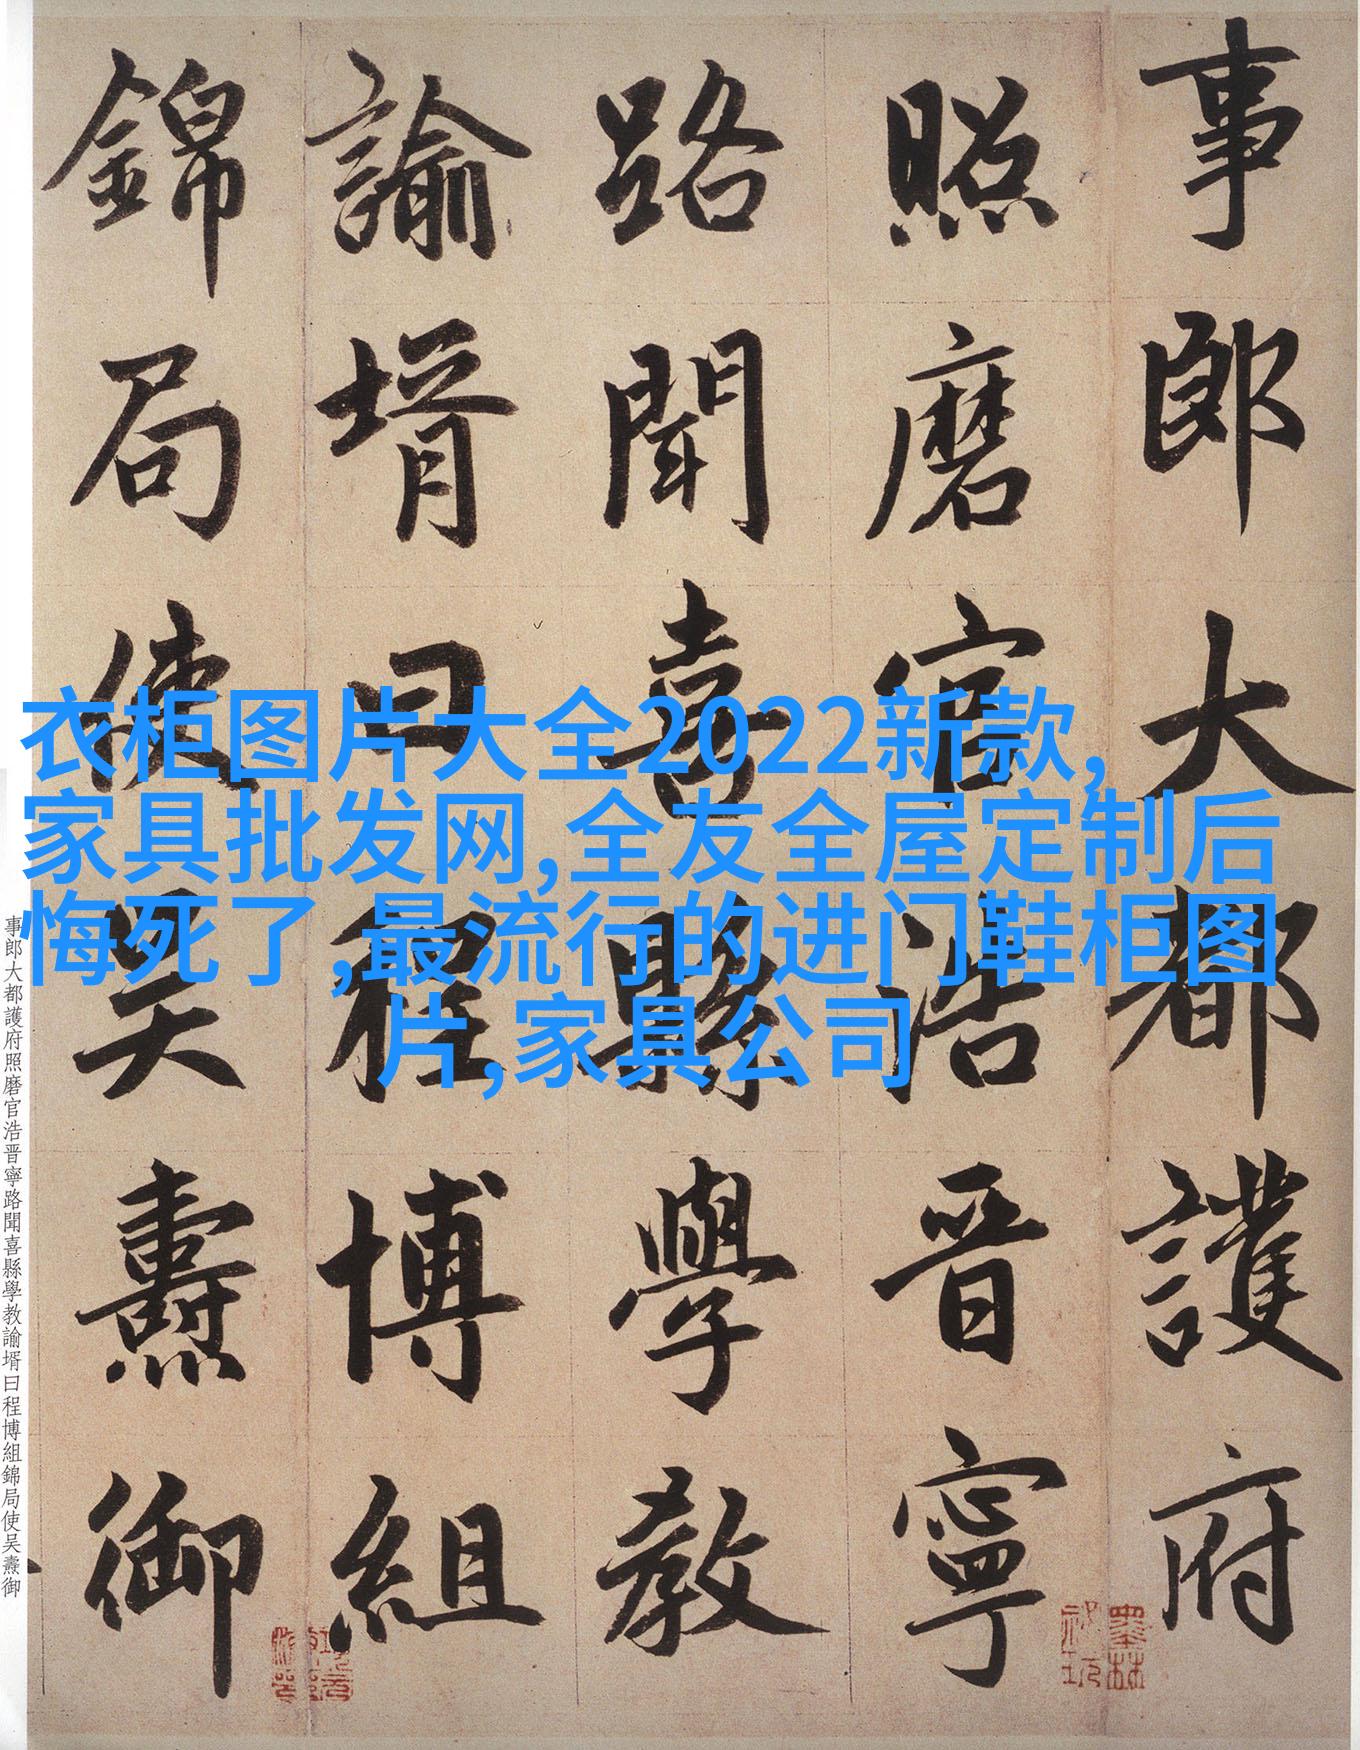 事郎大都護府
照磨官浩晋寧
路聞喜縣學教
諭壻曰程博組
錦局使吴燾御
衣柜图片大全2022新款,
家具批发网,全友全屋定制后
悔死了,最流行的进门鞋柜图
片,家具公司
事郎大都護府照磨官浩晋寧路聞喜縣學教諭壻曰程博組錦局使吴燾御